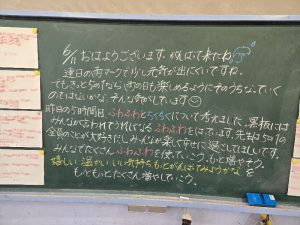 6/11 おはようございます。がんばって来たね
連日の雨マークで少し元気が出にくいですね。
でもきっと5の1なら雨の日も楽しめるようにそのうちなっていく
のではないかな。そんな気がしています
昨日の5時間目、ふわふわとちくちくについて考えました。黒板には
みんなが言われてうれしくなるふわふわをはっています。先生は5の1の
全員のことが大好きだし、みんなが楽しく幸せに過ごしてほしいです。
みんなでたくさんふわふわを使っていこう。もっと増やそう。
嬉しい 温かい いい気持ち もっとがんばってみようかな を
もっともっとたくさん増やしていこう。